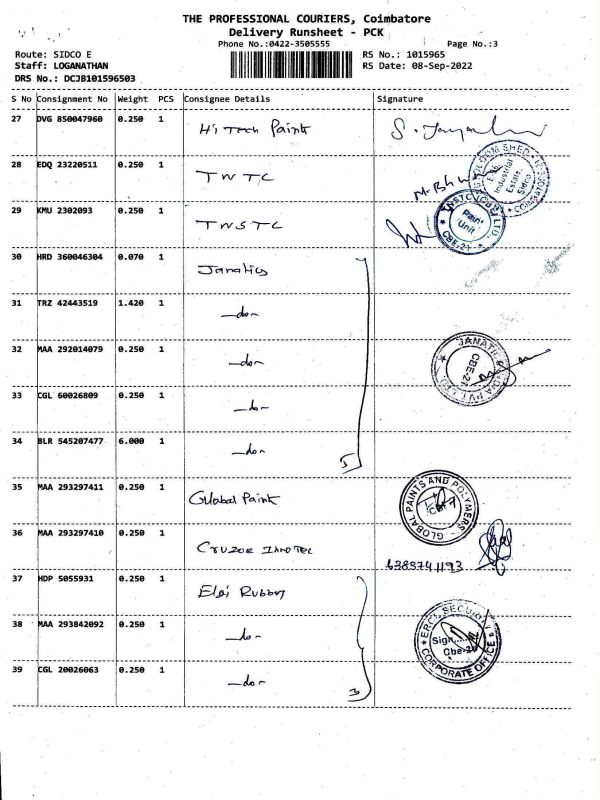 THE PROFESSIONAL COURIERS, Coimbatore
Delivery Runsheet - PCK
Phone No.:0422-3505555 Page No.:3
Route: SIDCO E RS No.: 1015965
Staff: LOGANATHAN RS Date: 08-Sep-2022
DRS No.: DCJB101596503
S No Consignment No Weight PCS Consignee Details Signature
27 DVG 850047960 0.250 1 Hi Tech Paint
28 EDQ 23220511 0.250 1 TNTC
29 KMU 2302093 0.250 1 TNSTC
30 HRD 360046304 0.070 1 Janatics
31 TRZ 42443519 1.420 1 -do-
32 MAA 292014079 0.250 1 -do-
33 CGL 60026809 0.250 1 -do-
34 BLR 545207477 6.000 1 -do- 5
35 MAA 293297411 0.250 1 Global Paint GLOBAL PAINTS AND POLYMERS
36 MAA 293297410 0.250 1 6383741193
37 HDP 5055931 0.250 1
38 MAA 293842092 0.250 1 -do- SECURITY Sign..... CORPORATE OFFICE
39 CGL 20026063 0.250 1 -do- 3